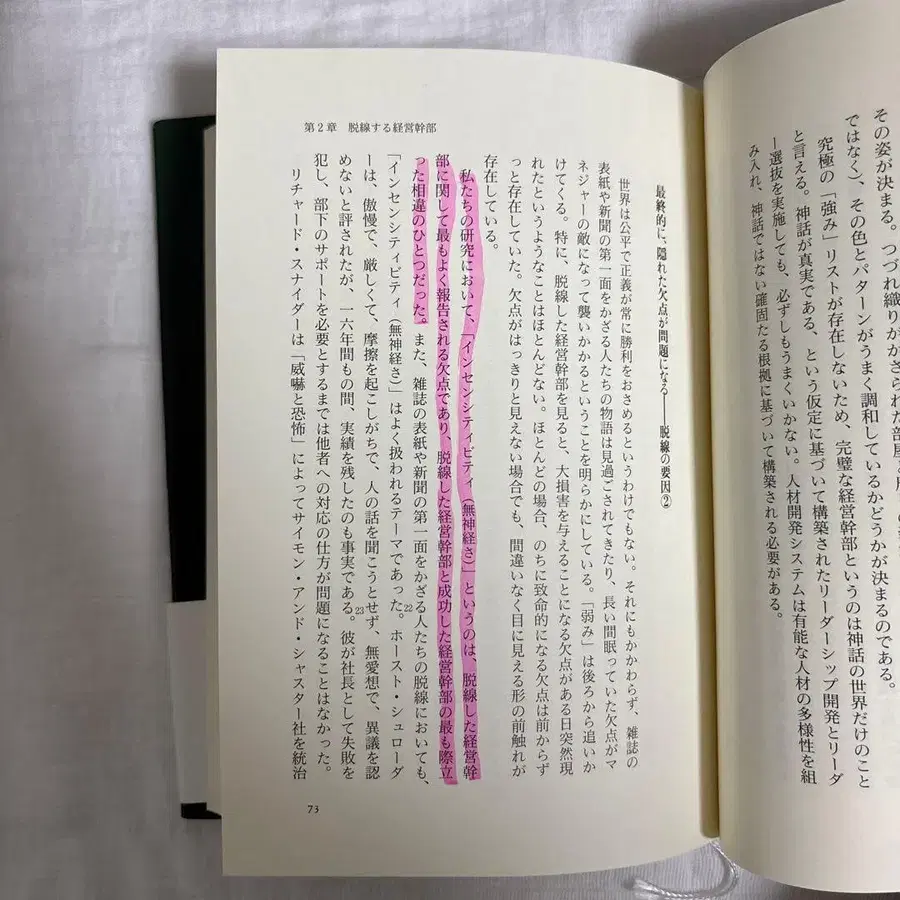 その姿が決まる。つづれ織りが
ではなく)、その色とパターンがうまく調和しているかどうかが決まるのである。
究極の「強み」リストが存在しないため、完璧な経営幹部というのは神話の世界だけのこと
と言える。神話が真実である、という仮定に基づいて構築されたリーダーシップ開発とリーダ
ー選抜を実施しても、必ずしもうまくいかない。人材開発システムは有能な人材の多様性を組
み入れ、神話ではない確固たる根拠に基づいて構築される必要がある。
第2章 脱線する経営幹部
最終的に、隠れた欠点が問題になる――脱線の要因②
世界は公平で正義が常に勝利をおさめるというわけでもない。それにもかかわらず、雑誌の
表紙や新聞の第一面をかざる人たちの物語は見過ごされてきたり、長い間眠っていた欠点がマ
ネジャーの敵になって襲いかかるということを明らかにしている。「弱み」は後ろから追いか
けてくる。特に、脱線した経営幹部を見ると、大損害を与えることになる欠点がある日突然現
れたというようなことはほとんどない。ほとんどの場合、のちに致命的になる欠点は前からず
っと存在していた。欠点がはっきりと見えない場合でも、間違いなく目に見える形の前触れが
存在している。
私たちの研究において、「インセンシティビティ(無神経さ)」というのは、脱線した経営幹
部に関して最もよく報告される欠点であり、脱線した経営幹部と成功した経営幹部の最も際立
った相違のひとつだった。また、雑誌の表紙や新聞の第一面をかざる人たちの脱線においても、
「インセンシティビティ(無神経さ)」はよく扱われるテーマであった。22ホースト・シュローダ
ーは、傲慢で、厳しくて、摩擦を起こしがちで、人の話を聞こうとせず、無愛想で、異議を認
めないと評されたが、一六年間もの間、実績を残したのも事実である。23彼が社長として失敗を
犯し、部下のサポートを必要とするまでは他者への対応の仕方が問題になることはなかった。
リチャード・スナイダーは「威嚇と恐怖」によってサイモン・アンド・シャスター社を統治
73